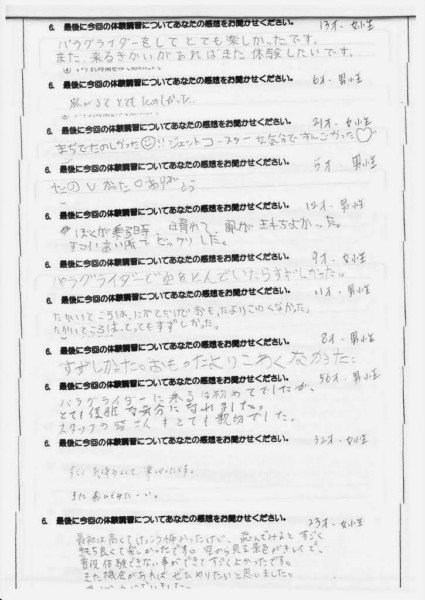 6. 最後に今回の体験講習についてあなたの感想をお聞かせください。 13才・女性
パラグライダーをしてとても楽しかったです。
また、来るきかいがあればまた体験したいです。
6. 最後に今回の体験講習についてあなたの感想をお聞かせください。 6才・男性
とても たのしかった
6. 最後に今回の体験講習についてあなたの感想をお聞かせください。 21才・女性
まぢでたのしかった!! ジェットコースター
6. 最後に今回の体験講習についてあなたの感想をお聞かせください。 5才・男性
たのしかった ありがとう
6. 最後に今回の体験講習についてあなたの感想をお聞かせください。 12才・男性
ぼくが乗る時、は晴れて、風が気持ちよかった。
すごい高い所でビックリした。
6. 最後に今回の体験講習についてあなたの感想をお聞かせください。 9才・女性
パラグライダーでゆをとんでいたらすずしかった。
6. 最後に今回の体験講習についてあなたの感想をお聞かせください。 11才・男性
たかいところは、にがてだけどおもったよりこわくなかった。
たかいところは、とってもすずしかった。
6. 最後に今回の体験講習についてあなたの感想をお聞かせください。 8才・男性
すずしかった。おもったよりこわくなかった。
6. 最後に今回の体験講習についてあなたの感想をお聞かせください。 56才・男性
パラグライダーに来るは初めてでしたが、
とても優雅な気分になれました。
スタッフの皆さんもとても親切でした。
6. 最後に今回の体験講習についてあなたの感想をお聞かせください。 32才・女性
楽しかったです。
また
6. 最後に今回の体験講習についてあなたの感想をお聞かせください。 23才・女性
最初は高くてけっこう怖かったけど、飛んでみるとすごく
気持ち良くて楽しかったです。空から見る景色がキレイで、
普段体験できない事ができてすごくよかったです。
また機会があればぜひやりたいと思いました。